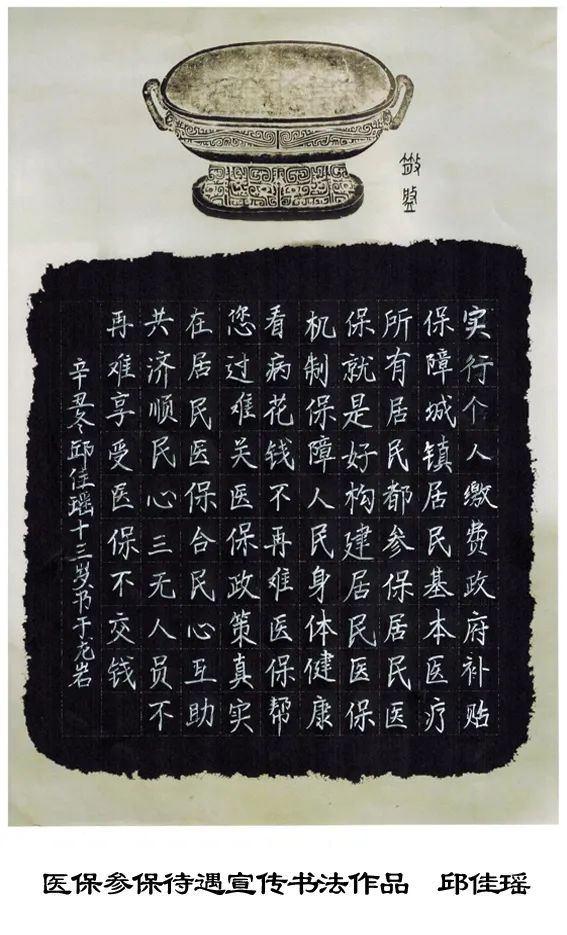 实行个人缴费政府补贴
保障城镇居民基本医疗
所有居民都参保居民医
保就是好构建居民医保
机制保障人民身体健康
看病花钱不再难医保帮
您过难关医保政策真实
在居民医保合民心互助
共济顺民心三无人员不
再难享受医保不交钱
辛丑冬邱佳瑶十三岁书于龙岩
医保参保待遇宣传书法作品 邱佳瑶